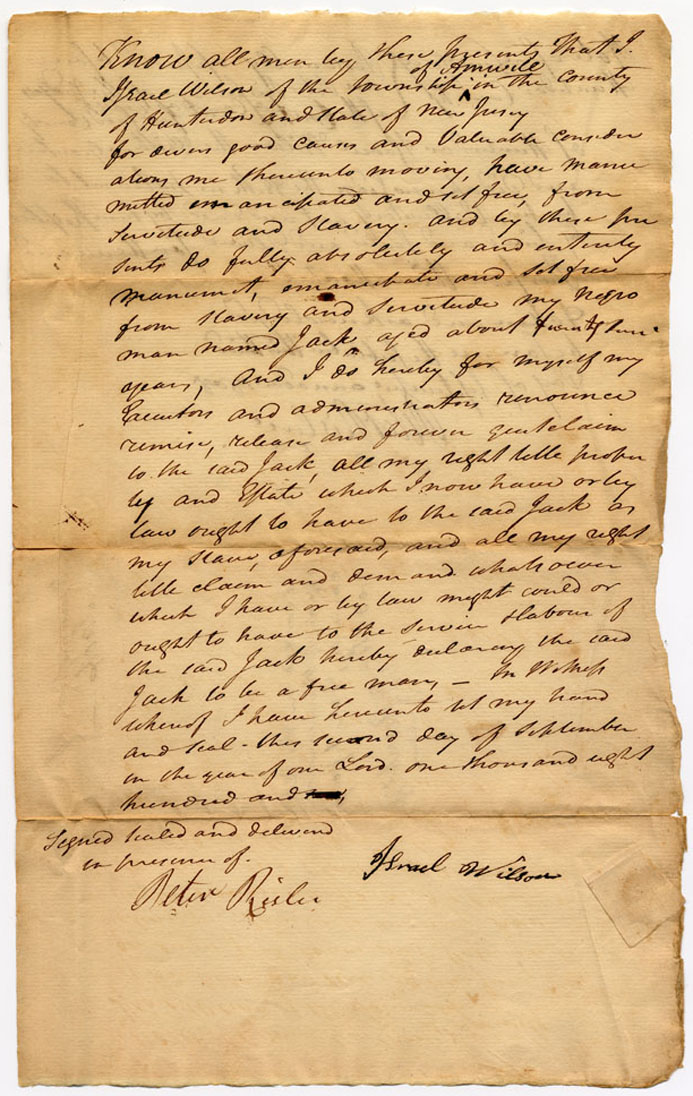 Know all men by these presents That I.
Israel Wilson of the township of Amwell in the county
of Hunterdon and State of New Jersey
for divers good causes and Valuable consider
ations me thereunto moving, have manu
mitted emancipated and set free, from
Servitude and Slavery. and by these pre
sents do fully absolutely and entirely
manumit, emancipate and set free
from slavery and servitude my Negro
man named Jack, aged about twenty
years, And I do hereby for myself my
Executors and administrators renounce
remise, release and forever quitclaim
to the said Jack, all my right title proper
ty and Estate which I now have or by
law ought to have to the said Jack as
my slave, aforesaid, and all my right
title claim and demand whatsoever
which I have or by law might could or
ought to have to the service & labour of
the said Jack hereby declaring the said
Jack to be a free man, — In Witness
whereof I have hereunto set my hand
and seal - this second day of September
in the year of our Lord. one thousand eight
hundred and
Signed sealed and delivered
in presence of.
Israel Wilson
Peter Risler